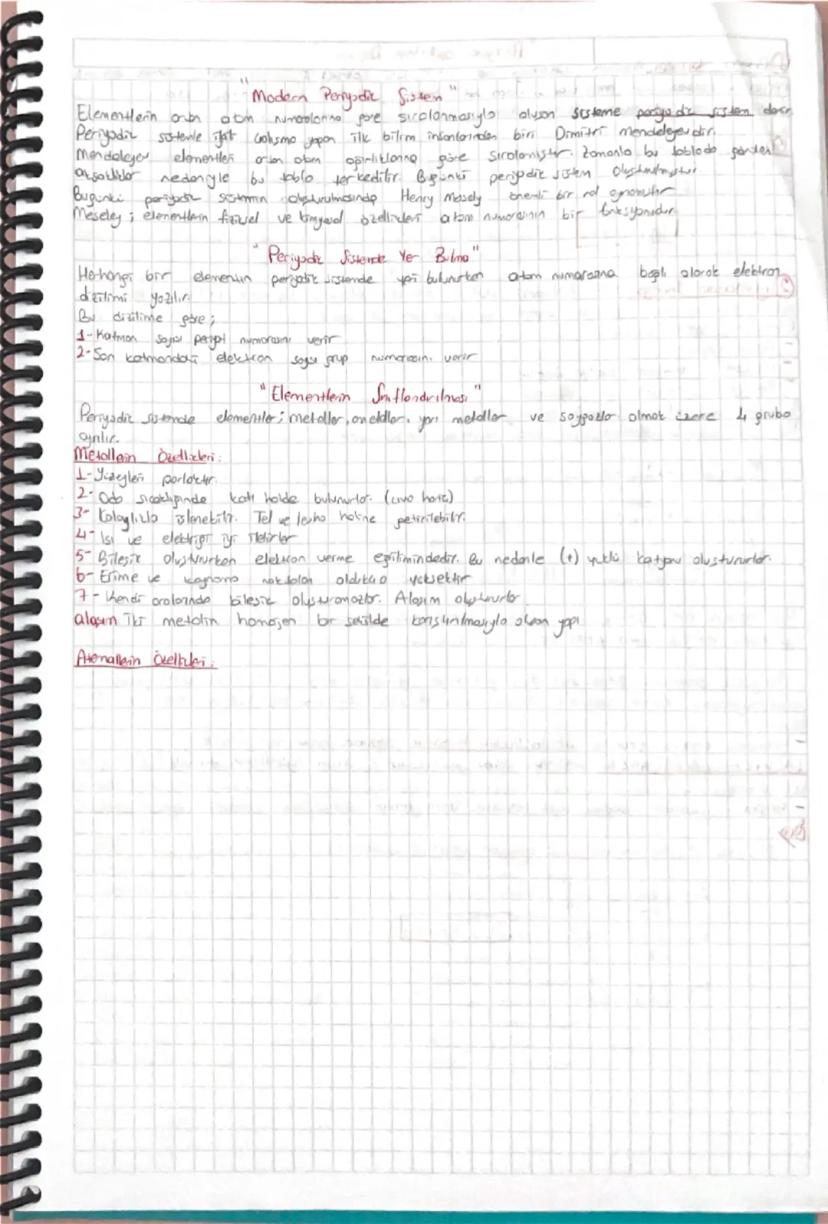 "Modern Periyodik Sistem"
Elementlerin artan atom numaralarına göre sıralanmasıyla oluşan sisteme periyodik sistem denir.
Periyodik sistemle ilgili çalışma yapan ilk bilim insanlarından biri Dimitri mendeleyevdir.
Mendeleyev elementleri artan atom ağırlıklarına göre sıralamıştır. Zamanla bu tabloda görülen
aksaklıklar nedeniyle bu tablo terkedilir. Bugünkü periyodik sistem oluşturulmuştur
Bugünkü periyodik sistemin oluşturulmasında Henry Mosely önemli bir rol oynamıştır
Meseley; elementlerin fiziksel ve kimyasal özellikleri atom numarasının bir fonksiyonudur.
"Periyodik Sistemde Yer Bulma"
Herhangi bir elementin periyodik sistemde yeri bulunurken atom numarasına bağlı olarak elektron
dizilimi yazılır.
Bu dizilime göre;
1- Katman sayısı periyot numarasını verir
2- Son katmandaki elektron sayısı grup numarasını verir
"Elementlerin Sınıflandırılması"
Periyodik sistemde elementler; metaller, ametaller, yarı metaller ve soygazlar olmak üzere 4 gruba
ayrılır.
Metallerin Özellikleri:
1- Yüzeyleri parlaktır.
2- Oda sıcaklığında katı halde bulunurlar. (cıva hariç)
3- Kolaylıkla işlenebilir. Tel ve levha haline getirilebilir.
4- Isı ve elektriği iyi iletirler
5- Bileşik oluştururken elektron verme eğilimindedir. Bu nedenle (+) yüklü katyon oluştururlar.
6- Erime ve kaynama noktaları oldukça yüksektir
7- Kendi aralarında bileşik oluşturamazlar. Alaşım oluştururlar
alaşım iki metalin homojen bir şekilde karıştırılmasıyla oluşan yapı
Ametallerin özellikleri: